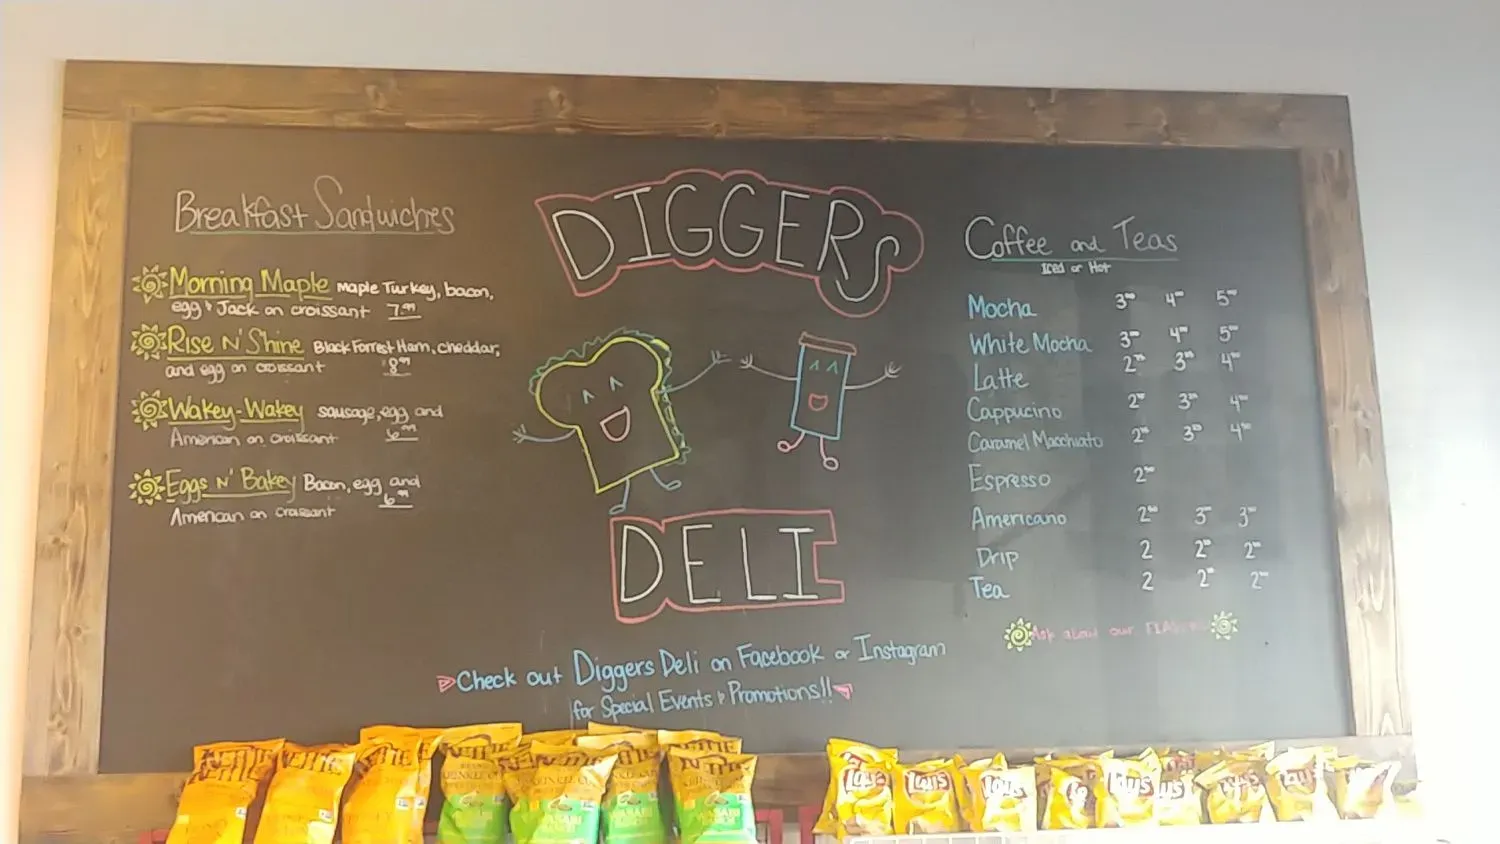 Breakfast Sandwiches
Morning Maple Maple Turkey, bacon,
egg & Jack on croissant 7.99
Rise N' Shine Black Forrest Ham, cheddar,
and egg on croissant 8
Wakey-Wakey sausage, egg and
American on croissant 6
Eggs N' Bakey Bacon, egg and
American on croissant 6
DIGGERS
DELI
Check out Diggers Deli on Facebook or Instagram
for Special Events & Promotions!!
Coffee and Teas
Iced or Hot
Mocha 3 4 5
White Mocha 3 4 5
Latte 2 3 4
Cappucino 2 3 4
Caramel Macchiato 2 3 4
Espresso 2
Americano 2 3 3
Drip 2 2 2
Tea 2 2 2
Ask about our
KETTLE
KRINKLE CUT
WASABI RANCH
Lay's
Lay's
Lay's
Lay's
Lay's
Lay's